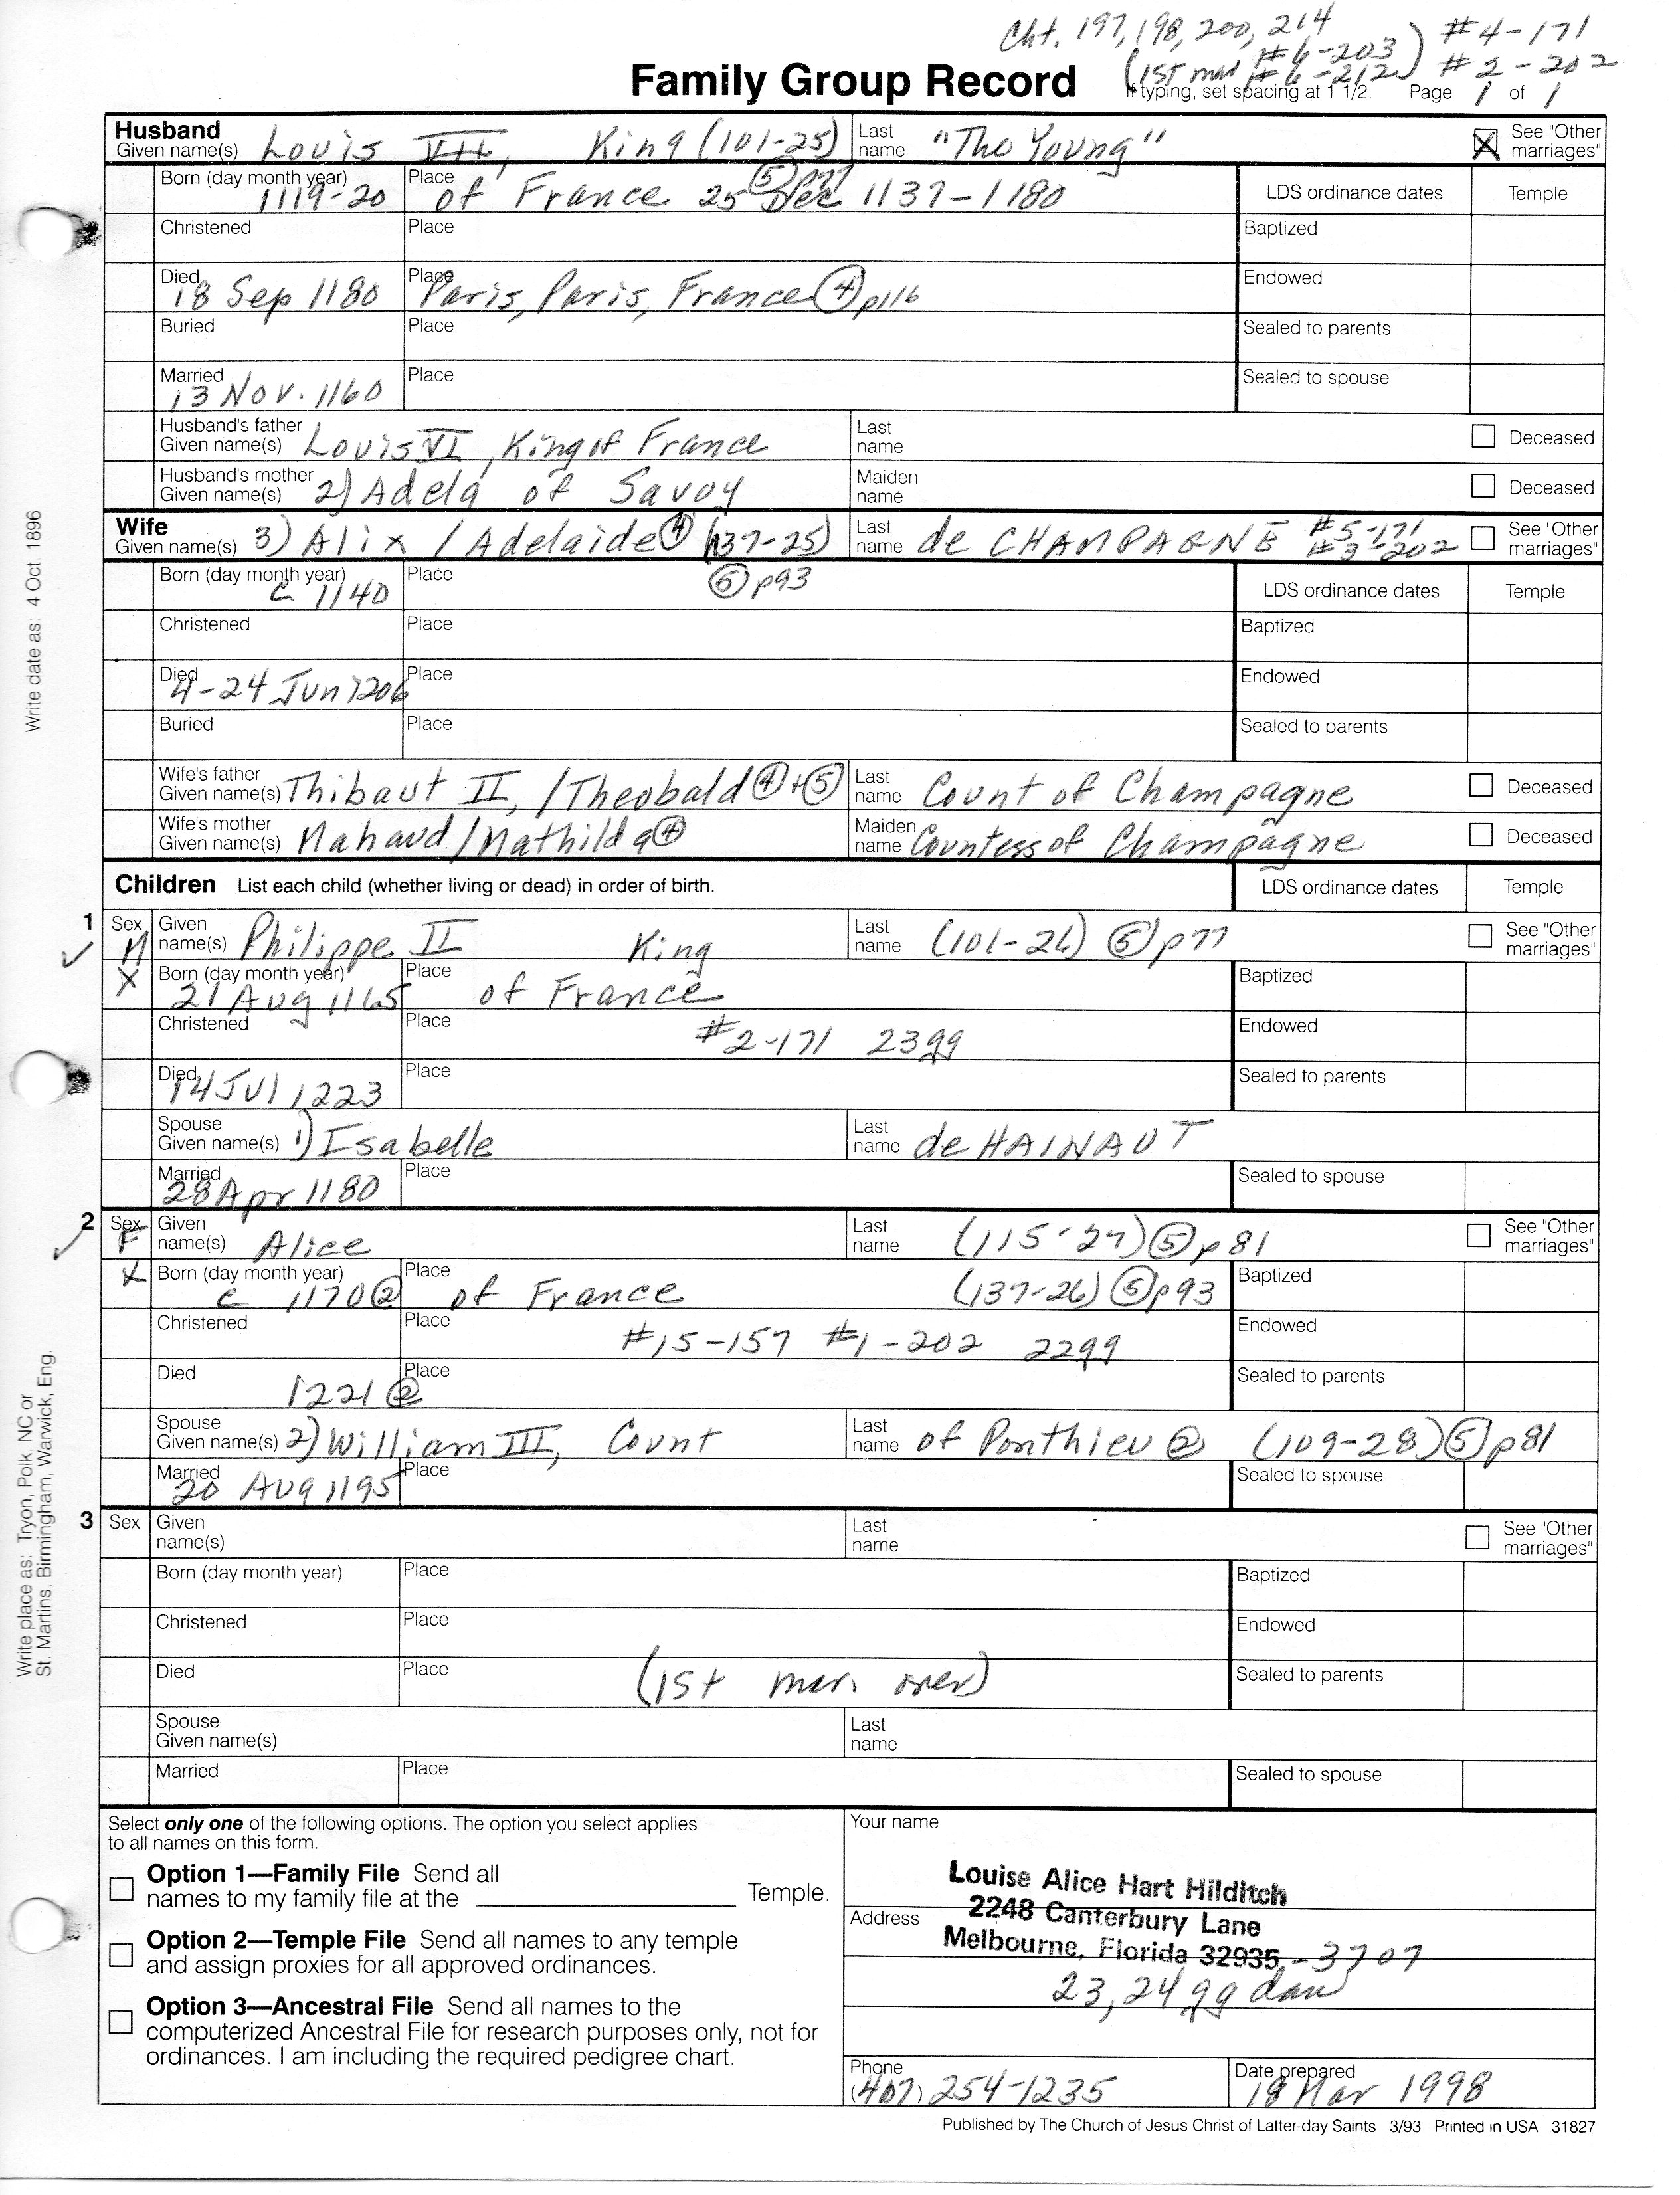 Cht. 197, 198, 200, 214
#4-171
(1st mar #6-203)
#6-212
#2-202
Family Group Record
If typing, set spacing at 1 1/2. Page 1 of 1
Husband Given name(s) Louis VII, King (101-25) Last name "The Young" See "Other marriages"
Born (day month year) 1119-20 Place of France 25 Dec 1137-1180 ⑤p77 LDS ordinance dates Temple
Christened Place Baptized
Died 18 Sep 1180 Place Paris, Paris, France ④p116 Endowed
Buried Place Sealed to parents
Married 13 Nov. 1160 Place Sealed to spouse
Husband's father Given name(s) Louis VI, King of France Last name Deceased
Husband's mother Given name(s) 2) Adela of Savoy Maiden name Deceased
Wife Given name(s) 3) Alix / Adelaide ④ (137-25) Last name de CHAMPAGNE #5-171 #3-202 See "Other marriages"
Born (day month year) c 1140 Place ⑤p93 LDS ordinance dates Temple
Christened Place Baptized
Died 4-24 Jun 1206 Place Endowed
Buried Place Sealed to parents
Wife's father Given name(s) Thibaut II, /Theobald ④+⑤ Last name Count of Champagne Deceased
Wife's mother Given name(s) Mahaud/Mathilda ④ Maiden name Countess of Champagne Deceased
Children List each child (whether living or dead) in order of birth. LDS ordinance dates Temple
1 Sex M Given name(s) Philippe II King Last name (101-26) ⑤p77 See "Other marriages"
X Born (day month year) 21 Aug 1165 Place of France Baptized
Christened Place #2-171 23gg Endowed
Died 14 Jul 1223 Place Sealed to parents
Spouse Given name(s) 1) Isabelle Last name de HAINAUT
Married 28 Apr 1180 Place Sealed to spouse
2 Sex F Given name(s) Alice Last name (115-27) ⑤p81 See "Other marriages"
X Born (day month year) c 1170 ② Place of France (137-26) ⑤p93 Baptized
Christened Place #15-157 #1-202 22gg Endowed
Died 1221 ② Place Sealed to parents
Spouse Given name(s) 2) William III, Count Last name of Ponthieu ② (109-28) ⑤p81
Married 20 Aug 1195 Place Sealed to spouse
3 Sex Given name(s) Last name See "Other marriages"
Born (day month year) Place Baptized
Christened Place Endowed
Died Place (1st mar. over) Sealed to parents
Spouse Given name(s) Last name
Married Place Sealed to spouse
Select only one of the following options. The option you select applies
to all names on this form.
Option 1—Family File Send all
names to my family file at the Temple.
Option 2—Temple File Send all names to any temple
and assign proxies for all approved ordinances.
Option 3—Ancestral File Send all names to the
computerized Ancestral File for research purposes only, not for
ordinances. I am including the required pedigree chart.
Your name
Louise Alice Hart Hilditch
Address 2248 Canterbury Lane
Melbourne, Florida 32935-3707
23, 24 gg dau
Phone (407) 254-1235 Date prepared 18 Mar 1998
Published by The Church of Jesus Christ of Latter-day Saints 3/93 Printed in USA 31827
Write date as: 4 Oct. 1896
Write place as: Tryon, Polk, NC or
St. Martins, Birmingham, Warwick, Eng.